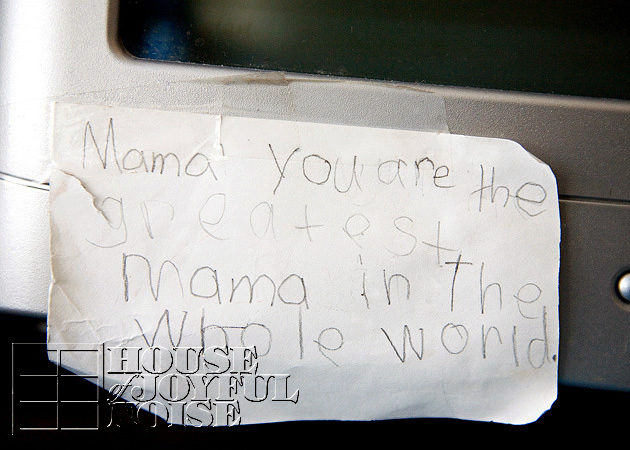 Mama you are the
greatest
mama in the
whole world.
HOUSE
of JOYFUL
NOISE